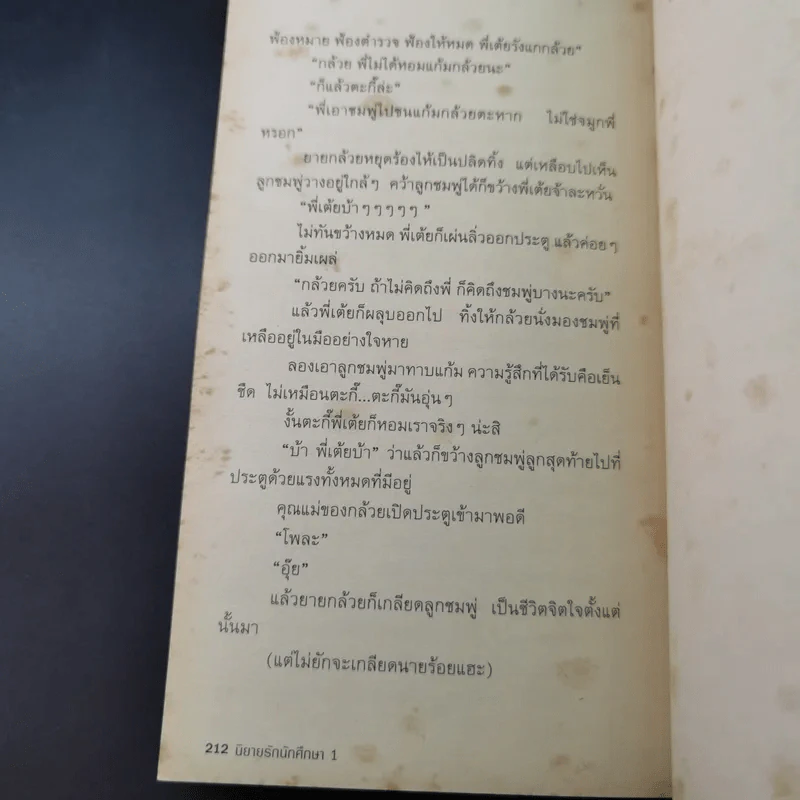 ฟ้องหมาย ฟ้องตำรวจ ฟ้องให้หมด พี่เต้ยรังแกกล้วย"
"กล้วย พี่ไม่ได้หอมแก้มกล้วยนะ"
"ก็แล้วตะกี้ล่ะ"
"พี่เอาชมพู่ไปชนแก้มกล้วยตะหาก ไม่ใช่จมูกพี่
หรอก"
ยายกล้วยหยุดร้องไห้เป็นปลิดทิ้ง แต่เหลือบไปเห็น
ลูกชมพู่วางอยู่ใกล้ๆ คว้าลูกชมพู่ได้ก็ขว้างพี่เต้ยจ้าละหวั่น
"พี่เต้ยบ้าๆๆๆๆๆ"
ไม่ทันขว้างหมด พี่เต้ยก็เผ่นลิ่วออกประตู แล้วค่อยๆ
ออกมายิ้มเผล่
"กล้วยครับ ถ้าไม่คิดถึงพี่ ก็คิดถึงชมพู่บางนะครับ"
แล้วพี่เต้ยก็ผลุบออกไป ทิ้งให้กล้วยนั่งมองชมพู่ที่
เหลืออยู่ในมืออย่างใจหาย
ลองเอาลูกชมพู่มาทาบแก้ม ความรู้สึกที่ได้รับคือเย็น
ชืด ไม่เหมือนตะกี้...ตะกี้มันอุ่นๆ
งั้นตะกี๊พี่เต้ยก็หอมเราจริงๆ น่ะสิ
"บ้า พี่เต้ยบ้า" ว่าแล้วก็ขว้างลูกชมพู่ลูกสุดท้ายไปที่
ประตูด้วยแรงทั้งหมดที่มีอยู่
คุณแม่ของกล้วยเปิดประตูเข้ามาพอดี
"โพละ"
"อุ๊ย"
แล้วยายกล้วยก็เกลียดลูกชมพู่ เป็นชีวิตจิตใจตั้งแต่
นั้นมา
(แต่ไม่ยักจะเกลียดนายร้อยแฮะ)
212 นิยายรักนักศึกษา 1